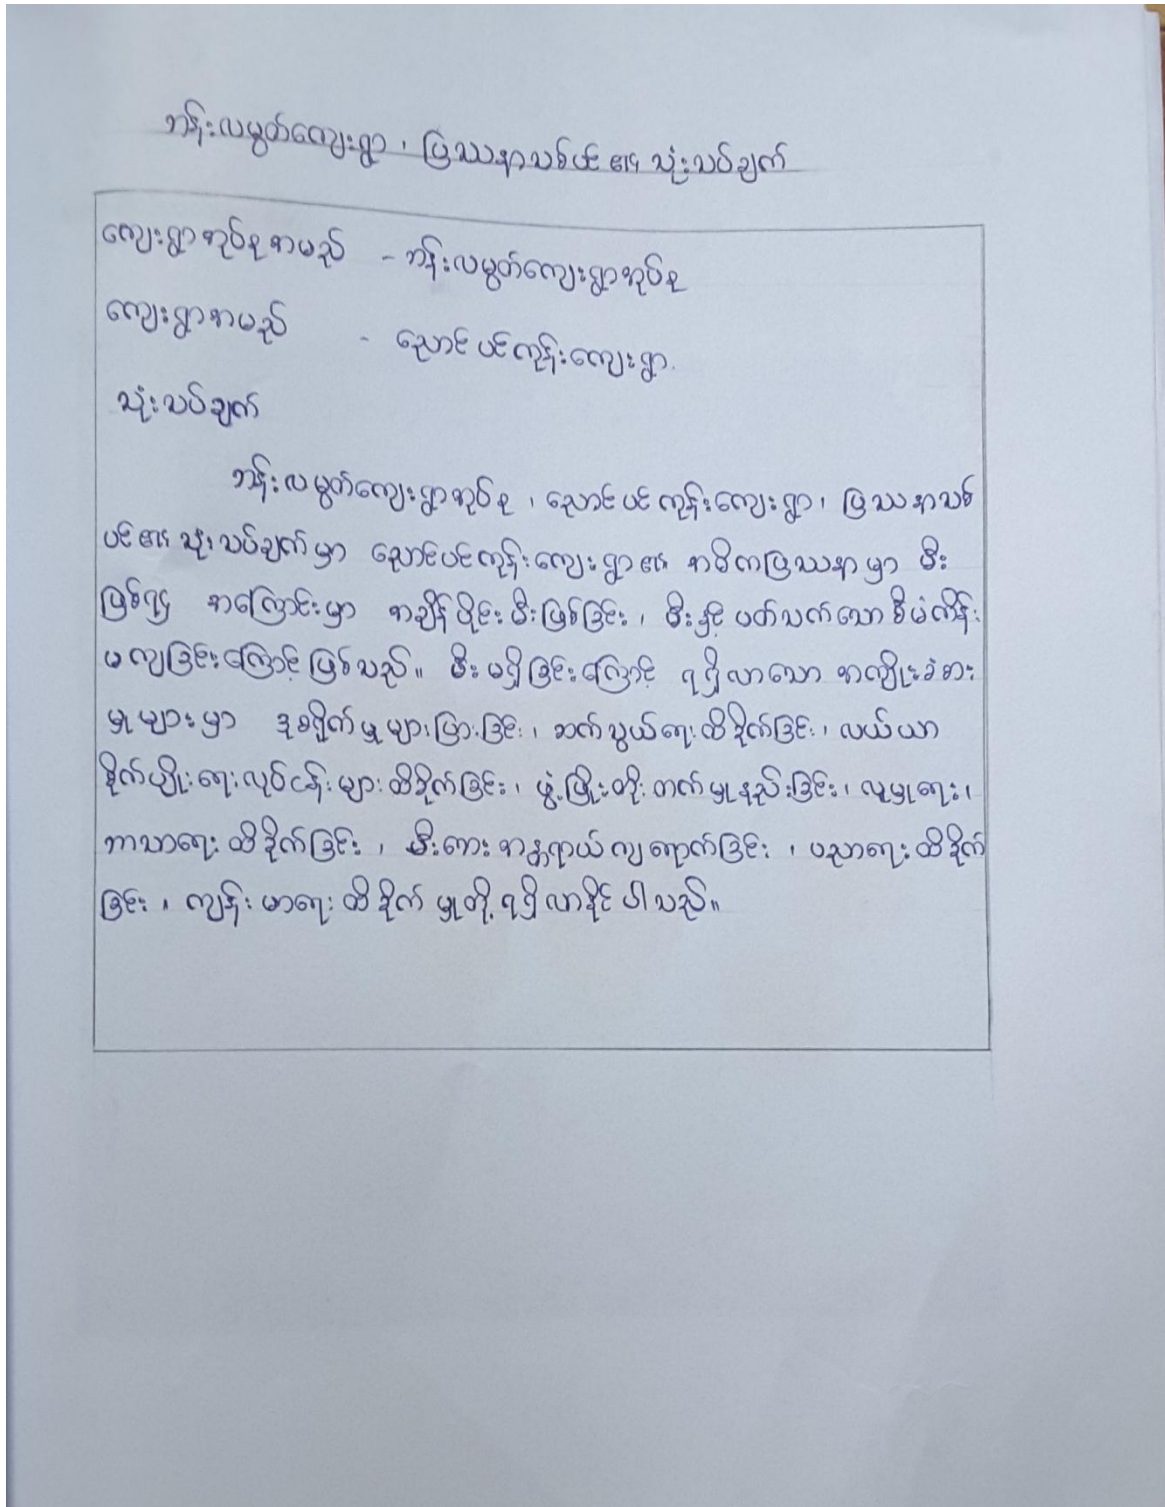 ဘန်းလမွတ်ကျေးရွာ ၊ ပြဿနာသစ်ပင်၏ သုံးသပ်ချက်
ကျေးရွာအုပ်စုအမည် - ဘန်းလမွတ်ကျေးရွာအုပ်စု
ကျေးရွာအမည် - ညောင်ပင်ကုန်းကျေးရွာ.
သုံးသပ်ချက်
ဘန်းလမွတ်ကျေးရွာအုပ်စု ၊ ညောင်ပင်ကုန်းကျေးရွာ ၊ ပြဿနာသစ်
ပင်၏ သုံးသပ်ချက်မှာ ညောင်ပင်ကုန်းကျေးရွာ၏ အဓိကပြဿနာမှာ မီး
ဖြစ်၍ အကြောင်းမှာ အချိန်ပိုင်းမီးဖြစ်ခြင်း ၊ မီးနှင့် ပတ်သက်သော စီမံကိန်း
မကျခြင်းကြောင့် ဖြစ်သည်။ မီးမရှိခြင်းကြောင့် ရရှိလာသော အကျိုးခံစား
မှုများမှာ ဒုစရိုက်မှုများပြားခြင်း ၊ ဆက်သွယ်ရေးထိခိုက်ခြင်း ၊ လယ်ယာ
စိုက်ပျိုးရေးလုပ်ငန်းများထိခိုက်ခြင်း ၊ ဖွံ့ဖြိုးတိုးတက်မှုနည်းခြင်း ၊ လူမှုရေး ၊
ဘာသာရေးထိခိုက်ခြင်း ၊ မီးဘေးအန္တရာယ်ကျရောက်ခြင်း ၊ ပညာရေးထိခိုက်
ခြင်း ၊ ကျန်းမာရေးထိခိုက်မှုတို့ ရရှိလာနိုင်ပါသည်။